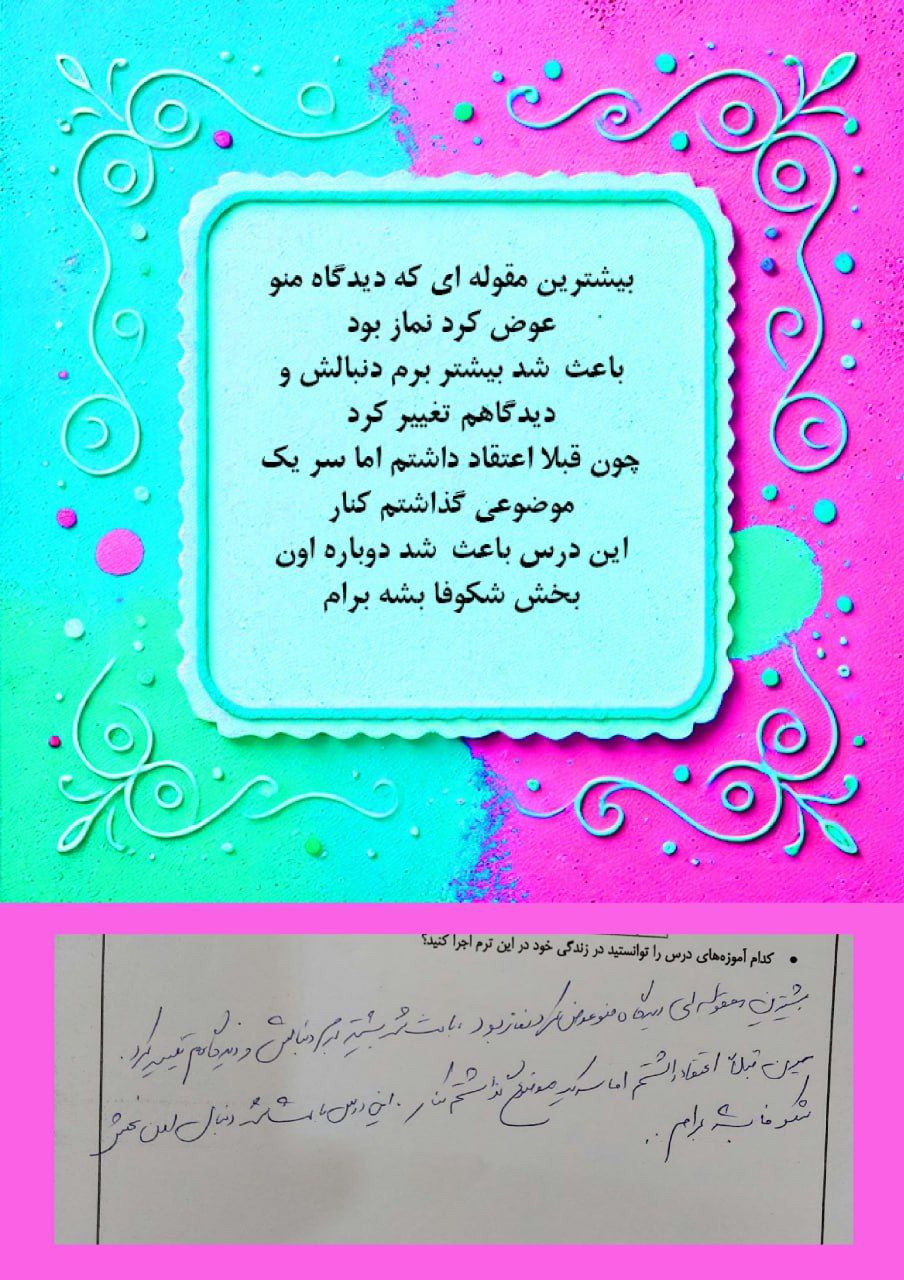 بیشترین مقوله ای که دیدگاه منو
عوض کرد نماز بود
باعث شد بیشتر برم دنبالش و
دیدگاهم تغییر کرد
چون قبلا اعتقاد داشتم اما سر یک
موضوعی گذاشتم کنار
این درس باعث شد دوباره اون
بخش شکوفا بشه برام
• کدام آموزه‌های درس را توانستید در زندگی خود در این ترم اجرا کنید؟
بیشترین مقوله ای دیدگاه منو عوض کرد نماز بود. باعث شد بیشتر برم دنبالش و دیدگاهم تغییر کرد.
قبلا اعتقاد داشتم اما سر یک موضوعی گذاشتم کنار. این درس باعث شد دنبال اون بخش
شکوفا بشه برام..